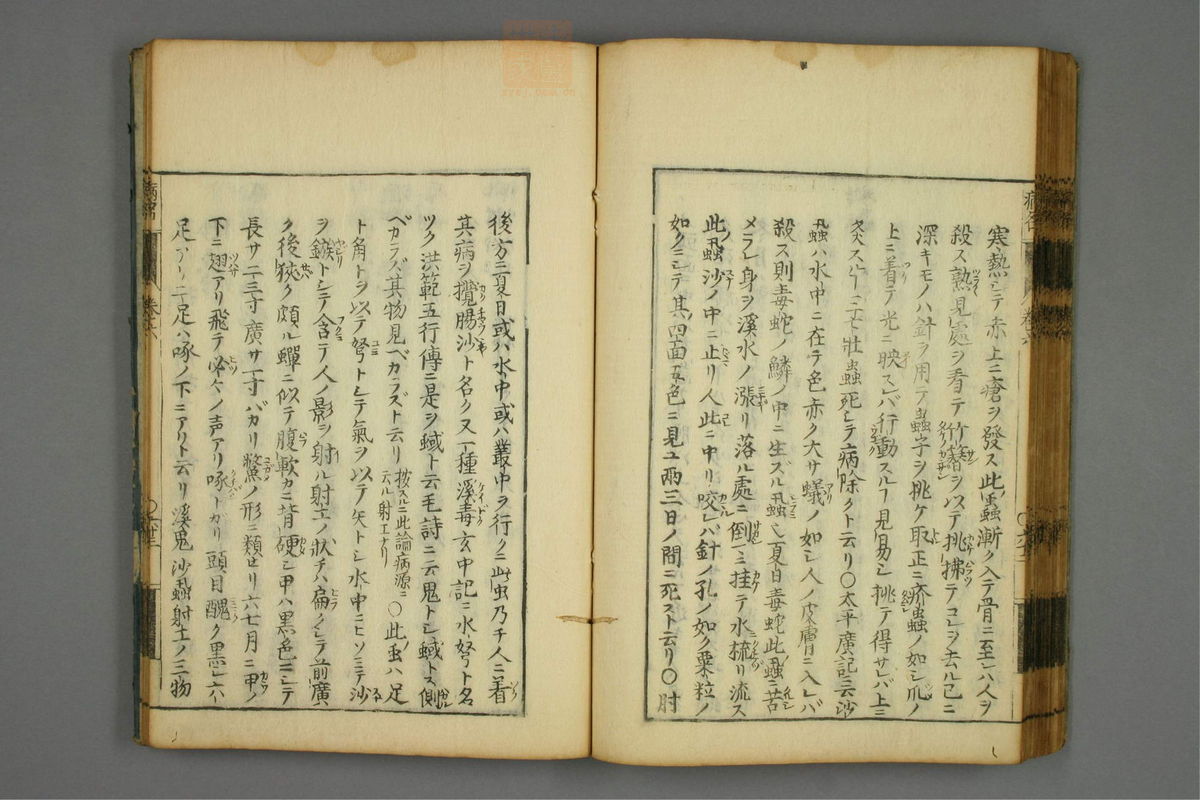 寒熱シテ赤上ニ瘡ヲ發ス此蟲漸ク入テ骨ニ至レハ人ヲ
殺ス熟見處ヲ看テ竹簪ヲ以テ挑拂テコレヲ去ル已ニ
深キモノハ針ヲ用テ蟲子ヲ挑ケ取正ニ疥蟲ノ如シ爪ノ
上ニ着テ光ニ映スレバ行動スルヿ見易シ挑テ得サレバ上ニ
灸スルヿ三七壯蟲死シテ病除クト云リ〇太平廣記云沙
蝨ハ水中ニ在テ色赤ク大サ蟻ノ如シ人ノ皮膚ニ入レバ
殺ス則毒蛇ノ鱗ノ中ニ生ズル蝨也夏日毒蛇此蝨ニ苦
メラレ身ヲ溪水ノ漲リ落ル處ニ倒ニ挂テ水梳リ流ス
此蝨沙ノ中ニ止リ人此ニ中リ咬レバ針ノ孔ノ如ク粟粒ノ
如クニシテ其四面五色ニ見ユ兩三日ノ間ニ死スト云リ〇肘
後方云夏日或ハ水中或ハ叢中ヲ行クニ此虫乃チ人ニ着
其病ヲ攪腸沙ト名ク又一種溪毒玄中記ニ水弩ト名
ツク洪範五行傳ニ是ヲ蜮ト云毛詩ニ云鬼トシ蜮トス側
ベカラズ其物見ベカラズト云リ 按スルニ此論病源ニ云ル射工ナリ 〇此虫ハ足
ト角トヲ以テ弩トシテ氣ヲ以テ矢トシ水中ニヒソミテ沙
ヲ鏃トシテ含テ人影ヲ射ル射工ノ狀チハ扁クシテ前廣
ク後狹ク頗ル蟬ニ似テ腹軟カニ背硬シ甲ハ黑色ニシテ
長サ二三寸廣サ一寸バカリ鱉ノ形ニ類セリ六七月ニ甲ノ
下ニ翅アリ飛テ必々ノ声アリ啄トカリ頭目醜ク黒シ六ノ
足アリ二足ハ啄ノ下ニアリト云リ溪鬼沙蝨射工ノ三物